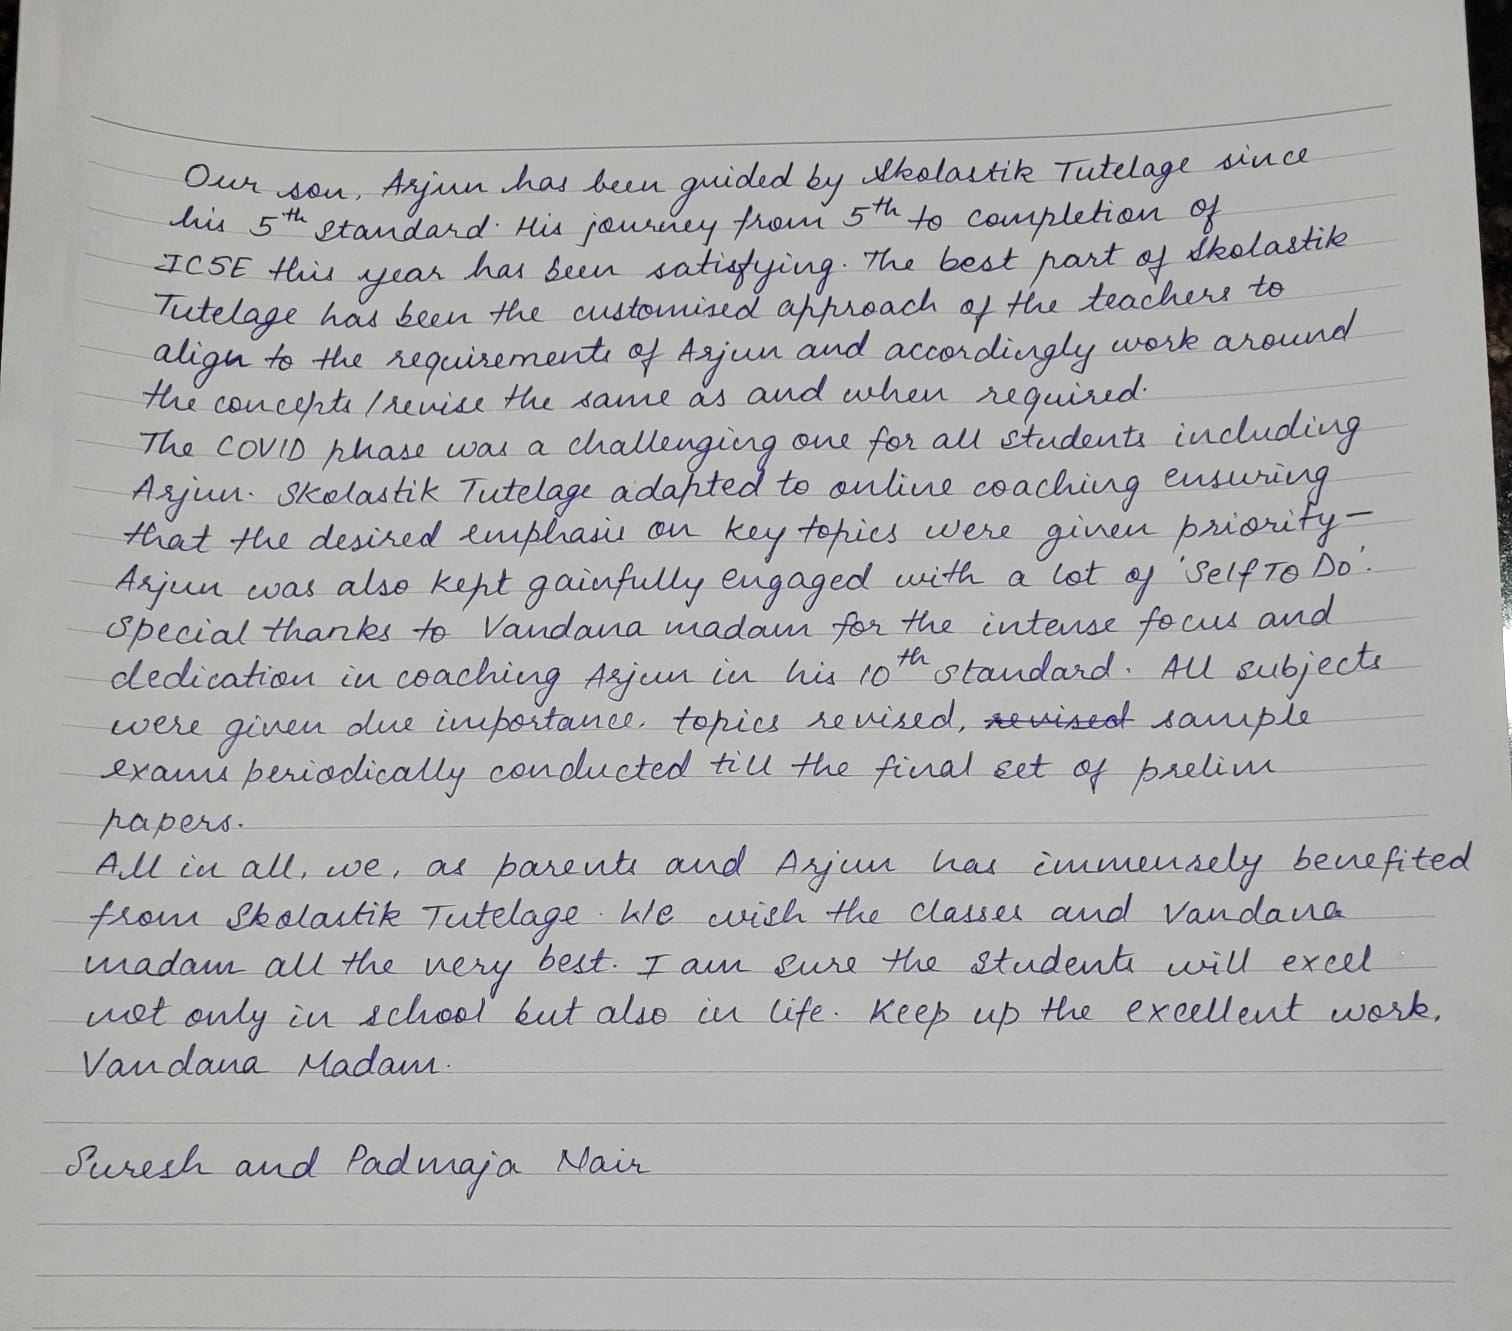 Our son, Arjun has been guided by Skolastik Tutelage since
his 5th standard. His journey from 5th to completion of
ICSE this year has been satisfying. The best part of Skolastik
Tutelage has been the customised approach of the teachers to
align to the requirements of Arjun and accordingly work around
the concepts / revise the same as and when required.
The COVID phase was a challenging one for all students including
Arjun. Skolastik Tutelage adapted to online coaching ensuring
that the desired emphasis on key topics were given priority –
Arjun was also kept gainfully engaged with a lot of 'Self To Do'.
Special thanks to Vandana madam for the intense focus and
dedication in coaching Arjun in his 10th standard. All subjects
were given due importance, topics revised, revised sample
exams periodically conducted till the final set of prelim
papers.
All in all, we, as parents and Arjun has immensely benefited
from Skolastik Tutelage. We wish the classes and Vandana
madam all the very best. I am sure the students will excel
not only in school but also in life. Keep up the excellent work,
Vandana Madam.
Suresh and Padmaja Nair